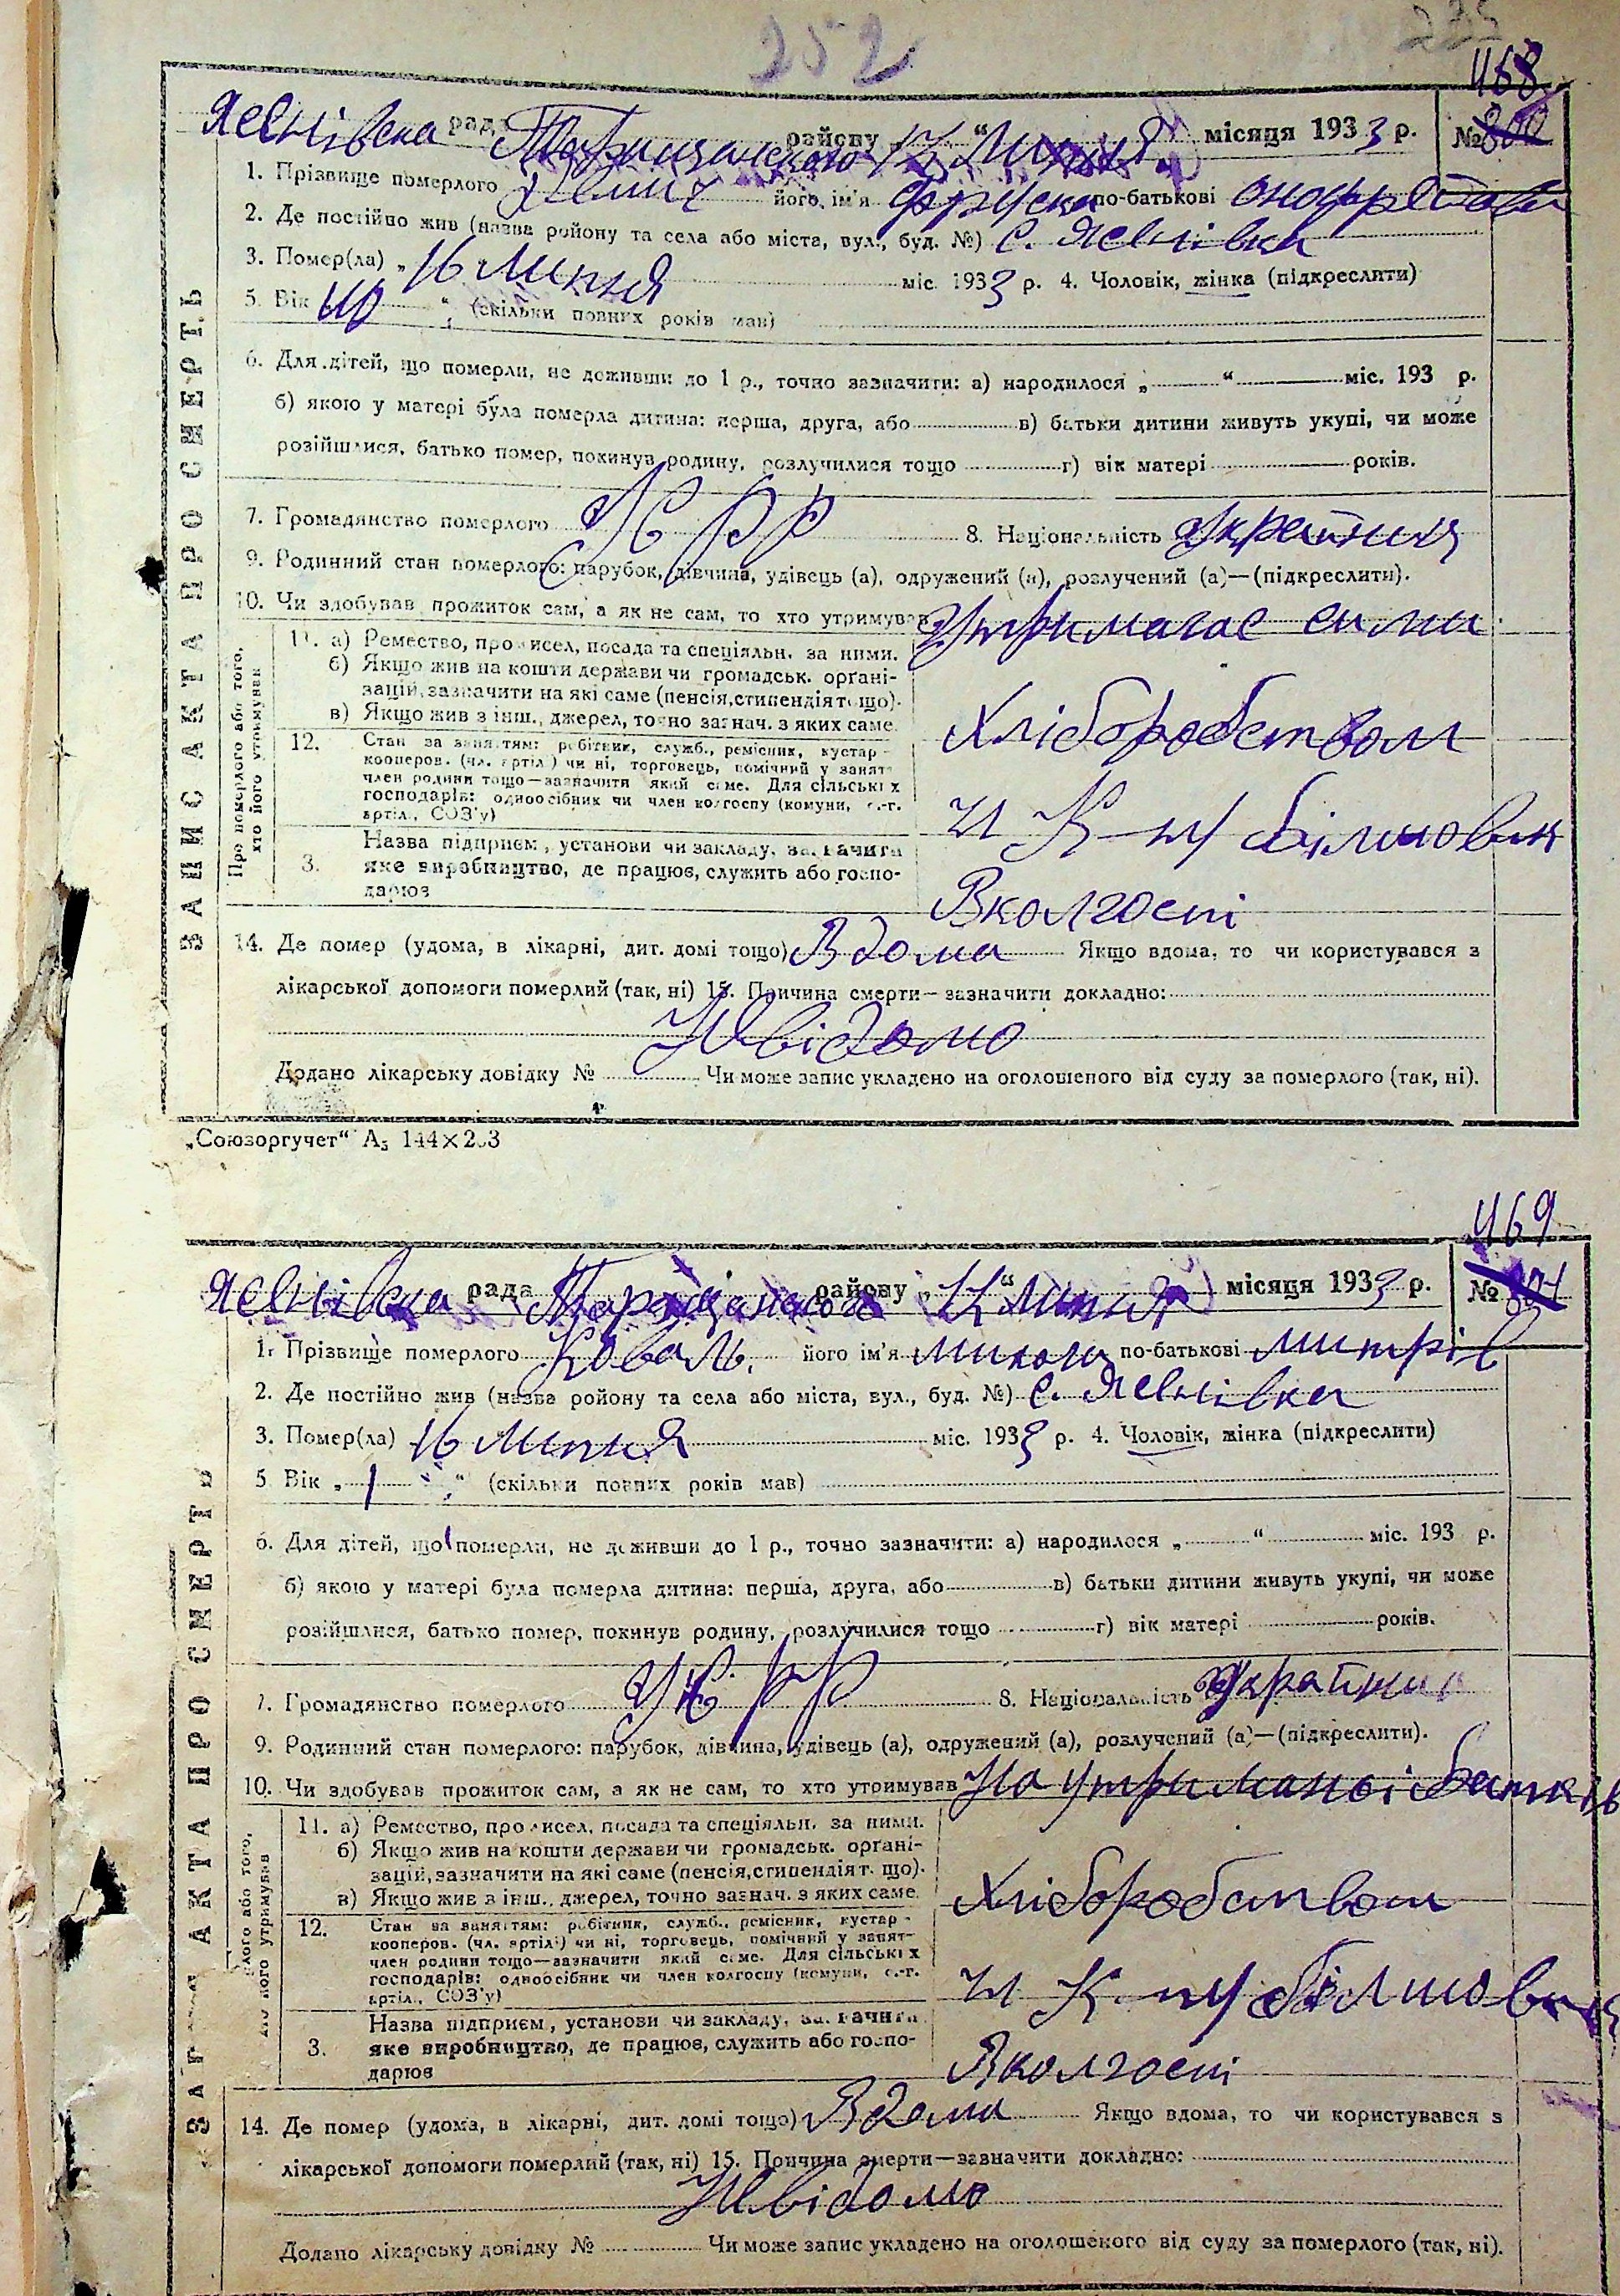 252
468
Яснівська рада Таращанського району 17 Липня місяця 1933 р. №
1. Прізвище померлого його ім'я Фруска по-батькові
2. Де постійно жив (назва ройону та села або міста, вул., буд. №) с. Яснівка
3. Помер(ла) „16 Липня міс. 1933 р. 4. Чоловік, жінка (підкреслити)
5. Вік 40 “ (скільки повних років мав)
6. Для дітей, що померли, не доживши до 1 р., точно зазначити: а) народилося „ “ міс. 193 р.
б) якою у матері була померла дитина: перша, друга, або в) батьки дитини живуть укупі, чи може
розійшлися, батько помер, покинув родину, розлучилися тощо г) вік матері років.
7. Громадянство померлого УСРР 8. Національність
9. Родинний стан померлого: парубок, дівчина, удівець (а), одружений (а), розлучений (а)—(підкреслити).
10. Чи здобував прожиток сам, а як не сам, то хто утримував
ЗАПИС АКТА ПРО СМЕРТЬ
Про померлого або того,
хто його утримував
11. а) Ремество, промисел, посада та спеціяльн. за ними.
б) Якщо жив на кошти держави чи громадськ. органі-
зацій, зазначити на які саме (пенсія, стипендія тощо).
в) Якщо жив з інш., джерел, точно зазнач. з яких саме.
Хліборобством
12. Стан за заняттям: робітник, служб., ремісник, кустар -
кооперов. (чл. артіл) чи ні, торговець, помічний у занят-
член родини тощо—зазначити який саме. Для сільських
господарів: одноосібник чи член колгоспу (комуни, с.-г.
артіл., СОЗ'у)
3. Назва підприєм., установи чи закладу, зазначити
яке виробництво, де працює, служить або госпо-
дарює
Вколгоспі
14. Де помер (удома, в лікарні, дит. домі тощо) Вдома Якщо вдома, то чи користувався з
лікарської допомоги померлий (так, ні) 15. Причина смерти—зазначити докладно:
Невідомо
Додано лікарську довідку № Чи може запис укладено на оголошеного від суду за померлого (так, ні).
„Союзоргучет“ А₅ 144×203
469
Яснівська рада Таращанського району „17 Липня місяця 1933 р. №
1. Прізвище померлого Коваль його ім'я Микола по-батькові Митрів
2. Де постійно жив (назва ройону та села або міста, вул., буд. №) с. Яснівка
3. Помер(ла) 16 Липня міс. 1933 р. 4. Чоловік, жінка (підкреслити)
5. Вік „ 1 “ (скільки повних років мав)
6. Для дітей, що померли, не доживши до 1 р., точно зазначити: а) народилося „ “ міс. 193 р.
б) якою у матері була померла дитина: перша, друга, або в) батьки дитини живуть укупі, чи може
розійшлися, батько помер, покинув родину, розлучилися тощо г) вік матері років.
7. Громадянство померлого УСРР 8. Національність
9. Родинний стан померлого: парубок, дівчина, удівець (а), одружений (а), розлучений (а)—(підкреслити).
10. Чи здобував прожиток сам, а як не сам, то хто утримував На утриманні батьків
ЗАПИС АКТА ПРО СМЕРТЬ
11. а) Ремество, промисел, посада та спеціяльн. за ними.
б) Якщо жив на кошти держави чи громадськ. органі-
зацій, зазначити на які саме (пенсія, стипендія т. що).
в) Якщо жив з інш., джерел, точно зазнач. з яких саме.
Хліборобством
12. Стан за заняттям: робітник, служб., ремісник, кустар -
кооперов. (чл. артіл) чи ні, торговець, помічний у занят-
член родини тощо—зазначити який саме. Для сільських
господарів: одноосібник чи член колгоспу (комуни, с.-г.
артіл., СОЗ'у)
3. Назва підприєм., установи чи закладу, зазначити
яке виробництво, де працює, служить або госпо-
дарює
Вколгоспі
14. Де помер (удома, в лікарні, дит. домі тощо) Вдома Якщо вдома, то чи користувався з
лікарської допомоги померлий (так, ні) 15. Причина смерти—зазначити докладно:
Невідомо
Додано лікарську довідку № Чи може запис укладено на оголошеного від суду за померлого (так, ні).